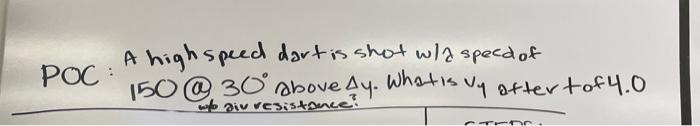 A high speed dart is shot w/a speed of
POC: 150 @ 30° above Δy. What is vy after t of 4.0
w/o air resistance?